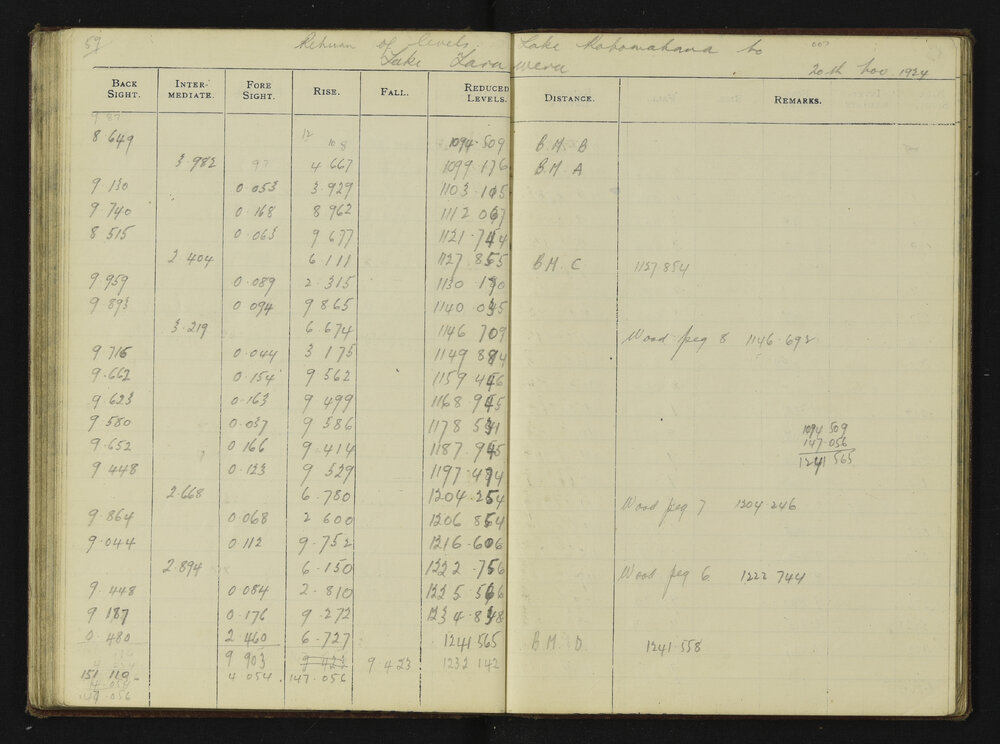 59 Return of levels. Lake Rotomahana to
Lake Tarawera 20th Nov 1924
BACK SIGHT. INTER-MEDIATE. FORE SIGHT. RISE. FALL. REDUCED LEVELS. DISTANCE. REMARKS.
8 649 1094·509 B.M. B
3·982 4 667 1099·176 B.M. A
9 130 0 053 3·929 1103·105
9·740 0·168 8 962 1112 067
8 515 0·063 9 677 1121·744
2 404 6 111 1127 855 B.M. C 1127·854
9·959 0·089 2·315 1130 170
9·893 0·094 9 865 1140 035
3·219 6·674 1146 709
Wood peg 8 1146·692
9 716 0·044 3 175 1149 884
9·662 0·154 9 562 1159 446
9·623 0·163 9 499 1168 945
9·580 0·037 9 586 1178 531
1094 509
9·652 0 166 9·414 1187 945
147 056
9 448 0·123 9 529 1197·474
1241 565
2·668 6·780 1204·254
Wood peg 7 1204·246
9·864 0 068 2 600 1206 854
9·044 0 112 9·752 1216·606
2·894 6·150 1222·756
Wood peg 6 1222 744
9·448 0·084 2·810 1225 566
9 187 0·176 9·272 1234·838
0·480 2 460 6·727 1241 565 B.M. D 1241·558
9 903 9 423 9 423 1232 142
151 110 4 054 147·056
4·054
147 056